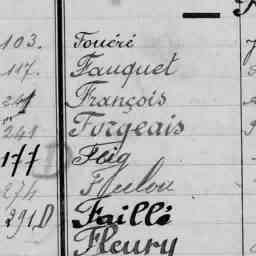 103. Foucré
117. Fauquet
241 François
241 Forgeais
177 D Feig
274
291 D Faillé
Fleury